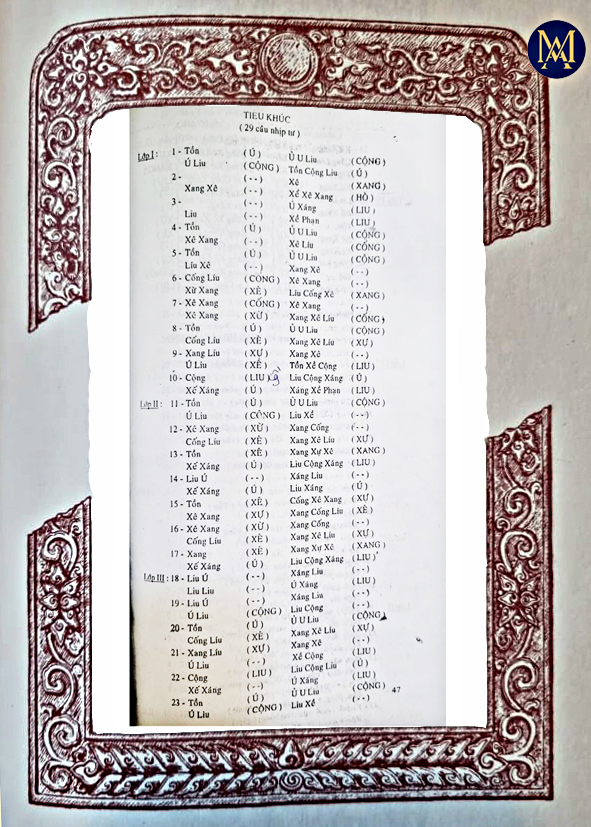 TIEU KHÚC
( 29 câu nhịp tư )
Lớp I : 1 - Tồn ( Ú ) Ủ U Liu ( CỘNG )
Ú Liu ( CỘNG ) Tồn Cộng Liu ( Ú )
2 - ( - - ) Xê ( XANG )
Xang Xê ( - - ) Xể Xê Xang ( HÒ )
3 - ( - - ) Ú Xáng ( LIU )
Liu ( - - ) Xề Phan ( LIU )
4 - Tồn ( Ú ) Ủ U Liu ( CỘNG )
Xê Xang ( - - ) Xê Líu ( CỐNG )
5 - Tồn ( Ú ) Ủ U Liu ( CỘNG )
Líu Xê ( - - ) Xang Xê ( - - )
6 - Cống Líu ( CỐNG ) Xê Xang ( - - )
Xừ Xang ( XÊ ) Líu Cống Xê ( XANG )
7 - Xê Xang ( CỐNG ) Xê Xang ( - - )
Xê Xang ( XỪ ) Xang Xê Líu ( CỐNG )
8 - Tồn ( Ú ) Ủ U Liu ( CỘNG )
Cống Líu ( XÊ ) Xang Xê Líu ( XỰ )
9 - Xang Líu ( XỰ ) Xang Xê ( - - )
Ú Liu ( XỀ ) Tồn Xề Cộng ( LIU )
10 - Cộng ( LIU ) Liu Cộng Xáng ( Ú )
Xế Xáng ( Ú ) Xáng Xề Phan ( LIU )
Lớp II : 11 - Tồn ( Ú ) Ủ U Liu ( CỘNG )
Ú Liu ( CỘNG ) Liu Xề ( - - )
12 - Xê Xang ( XỪ ) Xang Cống ( - - )
Cống Líu ( XÊ ) Xang Xê Líu ( XỰ )
13 - Tồn ( XÊ ) Xang Xự Xê ( XANG )
Xế Xáng ( Ú ) Liu Cộng Xáng ( LIU )
14 - Liu Ú ( - - ) Xáng Liu ( - - )
Xế Xáng ( Ú ) Liu Xáng ( Ú )
15 - Tồn ( XÊ ) Cống Xê Xang ( XỰ )
Xê Xang ( XỰ ) Xang Cống Líu ( XÊ )
16 - Xê Xang ( XỪ ) Xang Cống ( - - )
Cống Líu ( XÊ ) Xang Xê Líu ( XỰ )
17 - Xang ( XÊ ) Xang Xự Xê ( XANG )
Xế Xáng ( Ú ) Liu Cộng Xáng ( LIU )
Lớp III : 18 - Liu Ú ( - - ) Xáng Liu ( - - )
Liu Liu ( - - ) Ú Xáng ( LIU )
19 - Liu Ú ( - - ) Xáng Liu ( - - )
Ú Liu ( CỘNG ) Liu Cộng ( - - )
20 - Tồn ( Ú ) Ủ U Liu ( CỘNG )
Cống Líu ( XÊ ) Xang Xê Líu ( XỰ )
21 - Xang Líu ( XỰ ) Xang Xê ( - - )
Ú Liu ( - - ) Xề Cộng ( LIU )
22 - Cộng ( LIU ) Liu Cộng Liu ( Ú )
Xế Xáng ( - - ) Ú Xáng ( LIU )
23 - Tồn ( Ú ) Ủ U Liu ( CỘNG )
Ú Liu ( CỘNG ) Liu Xề ( - - )
47